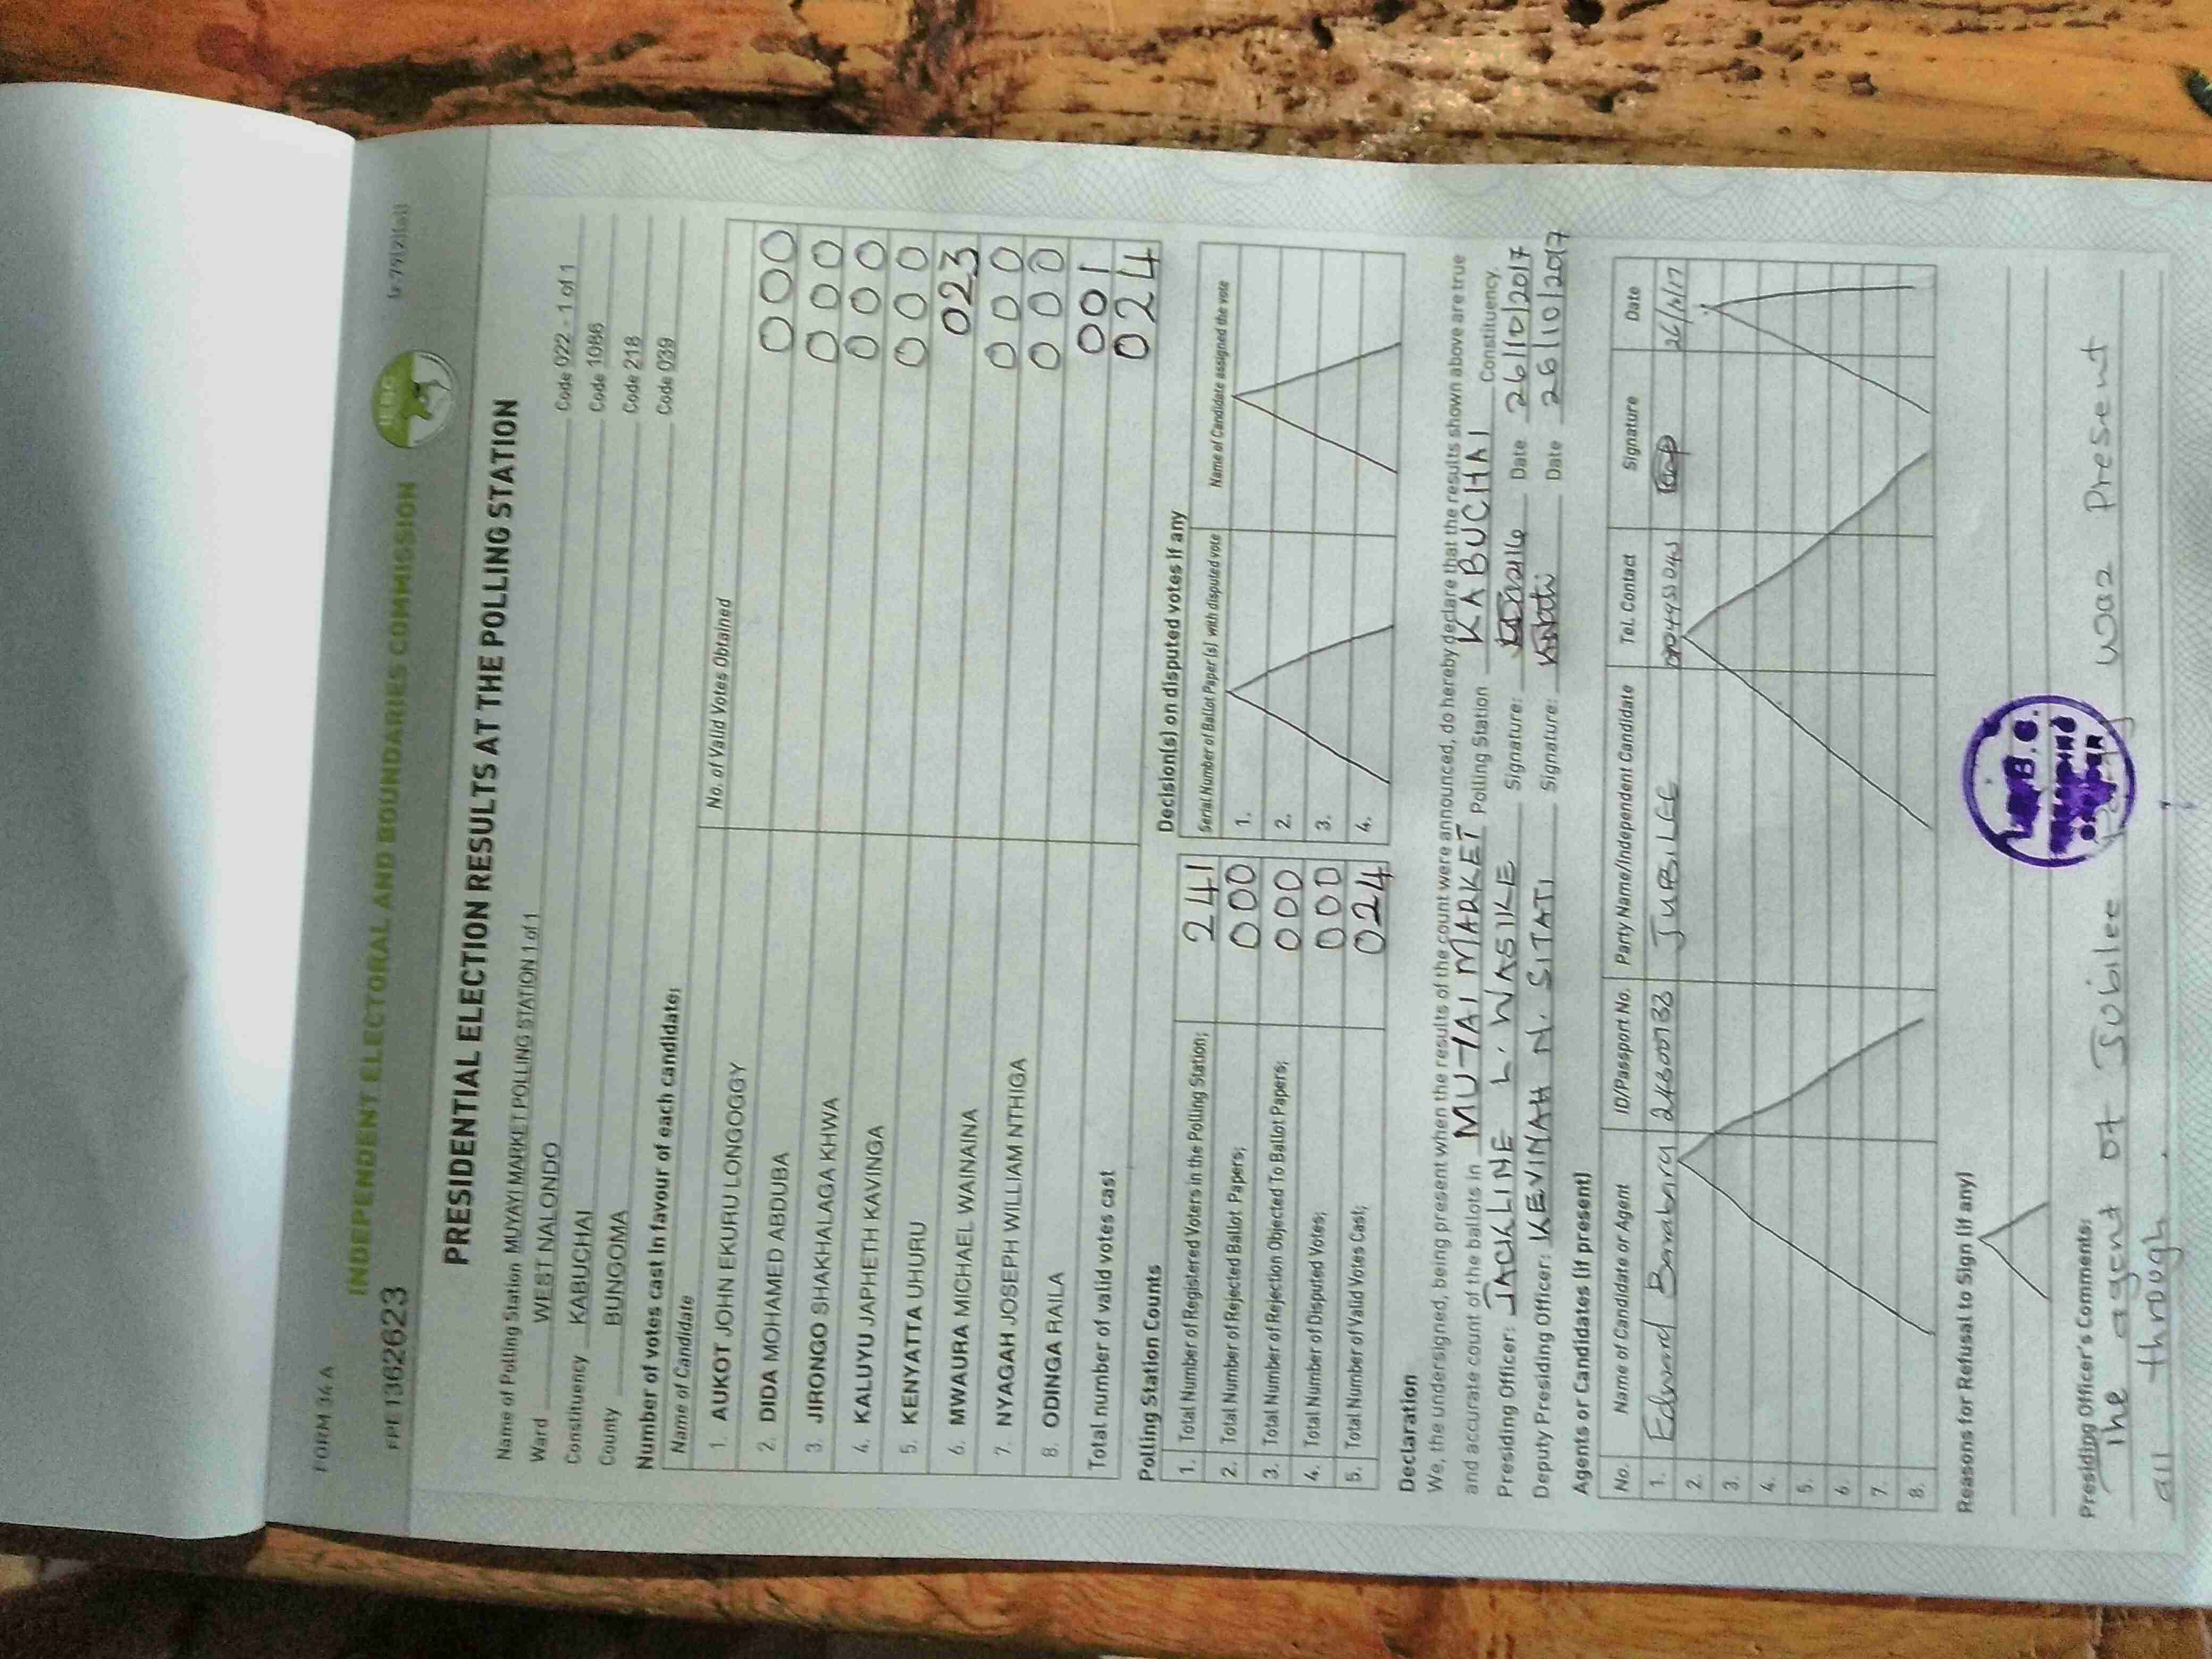 FORM 34 A
INDEPENDENT ELECTORAL AND BOUNDARIES COMMISSION
IEBC
PRE 1362623
PRESIDENTIAL ELECTION RESULTS AT THE POLLING STATION
Name of Polling Station MUYAYI MARKET POLLING STATION 1 of 1 Code 022 - 1 of 1
Ward WEST NALONDO Code 1086
Constituency KABUCHAI Code 218
County BUNGOMA Code 039
Number of votes cast in favour of each candidate:
Name of Candidate No. of Valid Votes Obtained
1. AUKOT JOHN EKURU LONGOGGY 000
2. DIDA MOHAMED ABDUBA 000
3. JIRONGO SHAKHALAGA KHWA 000
4. KALUYU JAPHETH KAVINGA 000
5. KENYATTA UHURU 023
6. MWAURA MICHAEL WAINAINA 000
7. NYAGAH JOSEPH WILLIAM NTHIGA 000
8. ODINGA RAILA 001
Total number of valid votes cast 024
Polling Station Counts
1. Total Number of Registered Voters in the Polling Station; 241
2. Total Number of Rejected Ballot Papers; 000
3. Total Number of Rejection Objected To Ballot Papers; 000
4. Total Number of Disputed Votes; 000
5. Total Number of Valid Votes Cast; 024
Decision(s) on disputed votes if any
Serial Number of Ballot Paper (s) with disputed vote Name of Candidate assigned the vote
1.
2.
3.
4.
Declaration
We, the undersigned, being present when the results of the count were announced, do hereby declare that the results shown above are true
and accurate count of the ballots in MUYAI MARKET Polling Station KABUCHAI Constituency.
Presiding Officer: JACKLINE L. WASIKE Signature: Date 26/10/2017
Deputy Presiding Officer: KEVINAH N. SITATI Signature: Date 26/10/2017
Agents or Candidates (if present)
No. Name of Candidate or Agent ID/Passport No. Party Name/Independent Candidate Tel. Contact Signature Date
1. Edward JUBILEE 26/10/17
2.
3.
4.
5.
6.
7.
8.
Reasons for Refusal to Sign (if any)
Presiding Officer's Comments:
The agent of Jubilee Party was Present
all through.
PRESIDING OFFICER